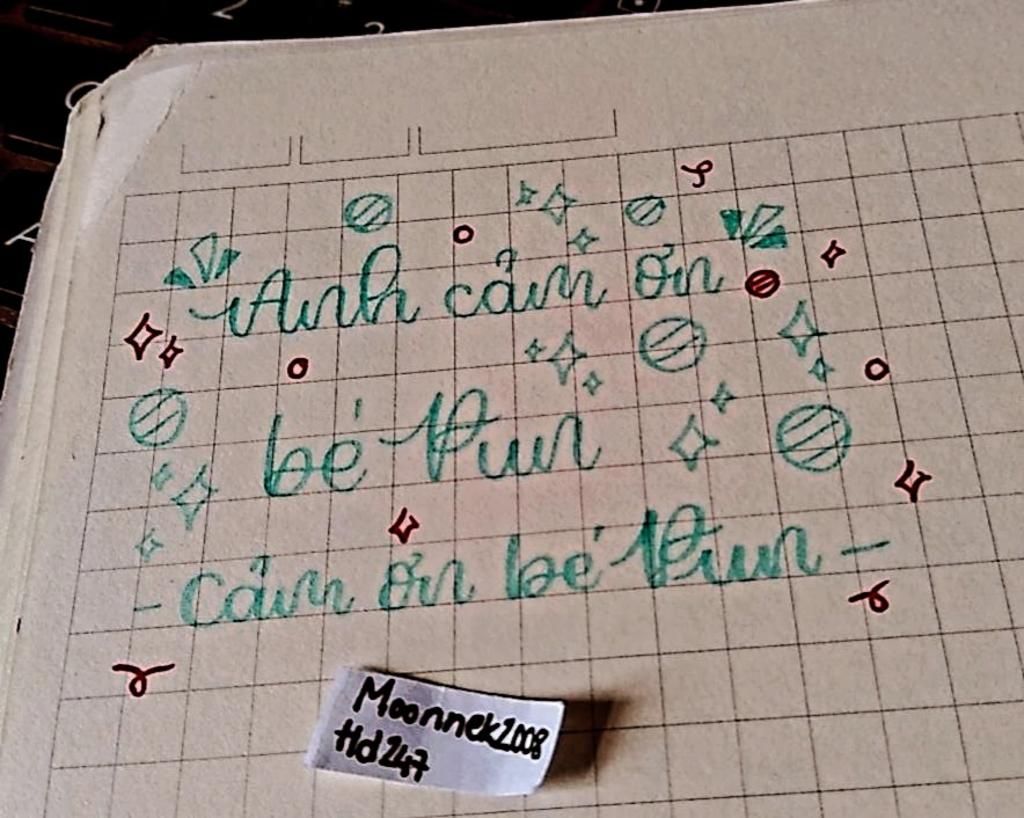 Anh cảm ơn
bé Pun
- Cảm ơn bé Pun -
Moonnek2008
Hd247